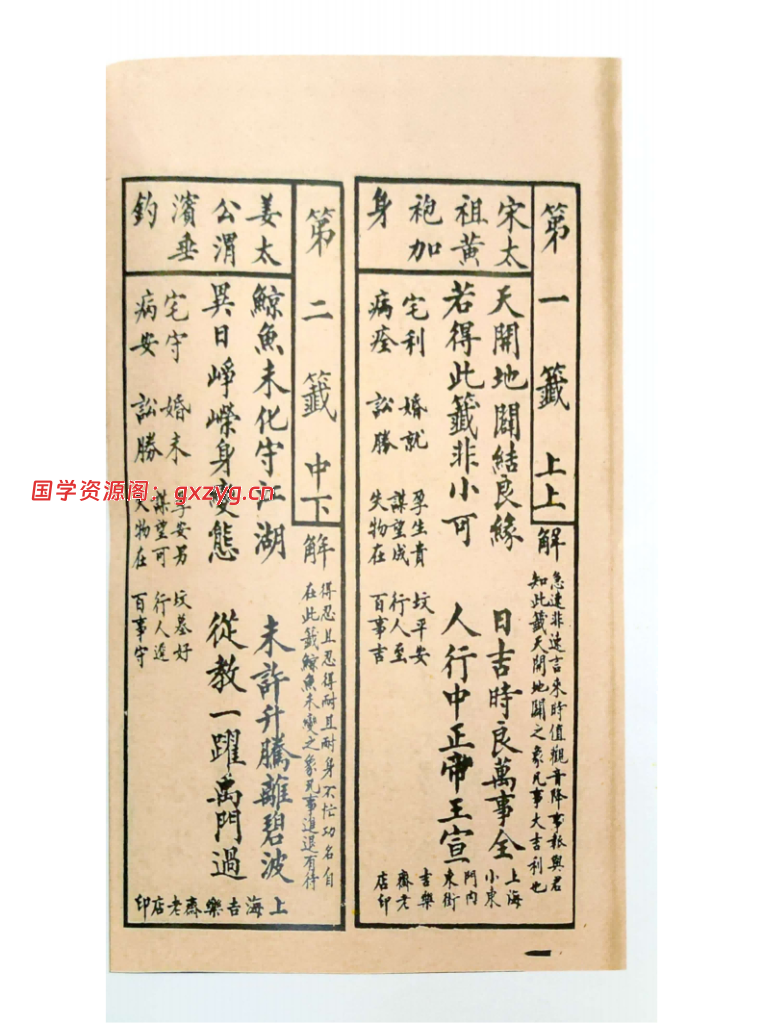 第一籤 上上
宋太
祖黃
袍加
身
解
急速非速言來時值觀音降事報與君
知此籤天開地闢之象凡事大吉利也
天開地闢結良緣 日吉時良萬事全
若得此籤非小可 人行中正帝王宣
宅利 婚就 孕生貴 坟平安
謀望成 行人至
病痊 訟勝 失物在 百事吉
上海
小東
門內
東街
吉樂
齋老
店印
第二籤 中下
姜太
公渭
濱垂
釣
解
得忍且忍得耐且耐身不忙功名自
在此籤鯨魚未變之象凡事進退有待
鯨魚未化守江湖 未許升騰離碧波
異日崢嶸身變態 從教一躍禹門過
宅守 婚未 孕安男 坟墓好
謀望可 行人進
病安 訟勝 失物在 百事守
上海吉樂齋老店印
国学资源阁：gxzyg.cn